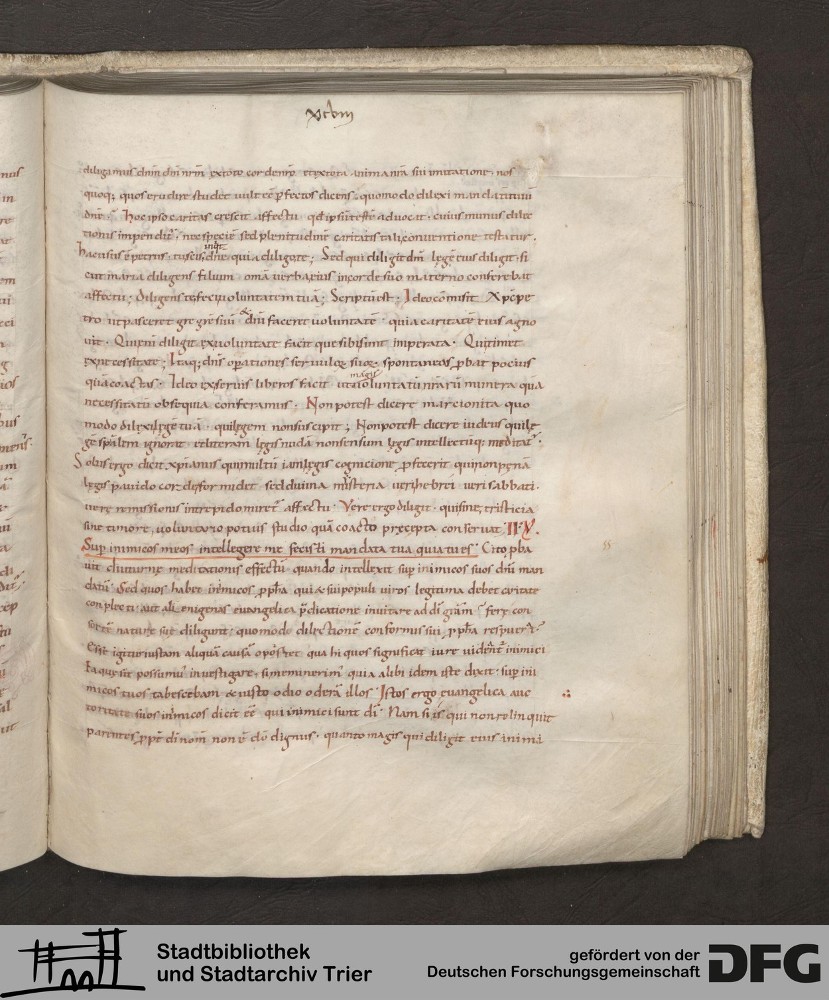 xcviii
diligimus dnm dm nrm ex toto corde nro et ex tota anima nra sui imitatione nos
quoq; quos erudire studet uult ee pfectos dicens quomodo dilexi mandatum tuum
dne. Hoc ipso caritas crescit affectu
tionis impendit nec specie sed plenitudine caritatis tali conuentione testatur.
inqt
hac usus e petrus tu scis dne quia diligo te; Sed qui diligit dnm lege eius diligit si
cut maria diligens filium omia uerba eius in corde suo materno conferebat
affectu; Diligens te feci uoluntatem tua; Scriptu est; Ideo comisit xpc pe
tro ut pasceret gregre suu dni faceret uoluntate quia caritate eius agno
uit. Qui eni diligit ex uoluntate facit que sibi sunt imperata. Qui timet
ex necessitate; Itaq; dns operationes seruulos suos spontaneas pbat pocius
magis
qua coactas. Ideo ex seruis liberos facit ut uoluntatu nraru munera qua
necessitatu obsequia conferamus. Non potest dicere marcionita quo
modo dilexi lege tua quilegem non suscipit; Non potest dicere iudeus qui lege
ge spalem ignorat et literam legis nuda non sensum legis intellectuq; meditat.
Solus ergo dicit xpianus qui multu iam legis cognicione pfecerit qui non pena
legis pauido corde formidet sed diuina mysteria ueri hebrei ueri sabbati
uere remissionis intrepido miret affectu. Vere ergo diligit qui sine tristicia
sine timore, uoluntario potius studio qua coacto precepta conseruat IIV.
Sup inimicos meos intellegere me fecisti mandata tua quia tu es Cito pba
uit diuturne meditationis effectu quando intellexit sup inimicos suos dni man
datu. Sed quos habet inimicos ppha qui & sui populi uiros legitima debet caritate
conplecti aut alienigenas euangelica pdicatione inuitare ad di gram
esse igitur iustam aliqua causa oportet qua hi quos significat iure uidentur inimici
Ea que sit possumus inuestigare, si meminerim quia alibi idem iste dixit sup ini
micos tuos tabescebam & iusto odio odera illos Istos ergo euangelica auc
toritate suos inimicos dicit ee qui inimici sunt di. Nam si is qui non relinquit
parentes ppt di nom non e do dignus quanto magis qui diligit eius inimi
Stadtbibliothek
und Stadtarchiv Trier
gefördert von der
Deutschen Forschungsgemeinschaft
DFG